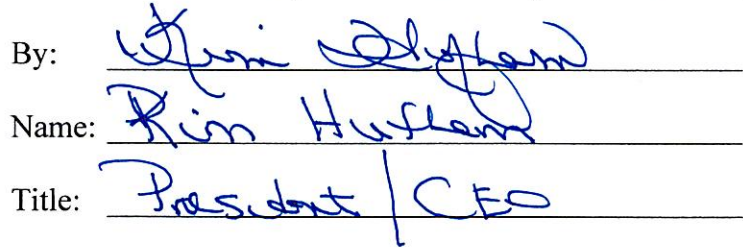 By: Kim Hufham
Name: Kim Hufham
Title: President / CEO